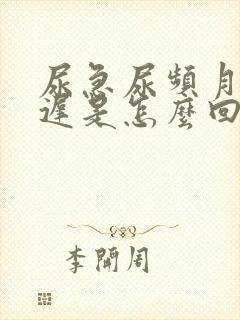 尿急尿頻月
遲是怎麼回
李開周